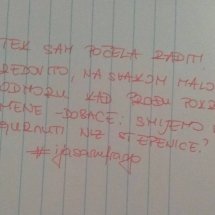 TEK SAM POČELA RADITI
REDOVITO, NA SVAKOM MALO
ODMORU KAD PROĐU POKR
MENE - DOBACE: SMIJEMO
GURNUTI NIZ STEPENICE?
#ijasamfago